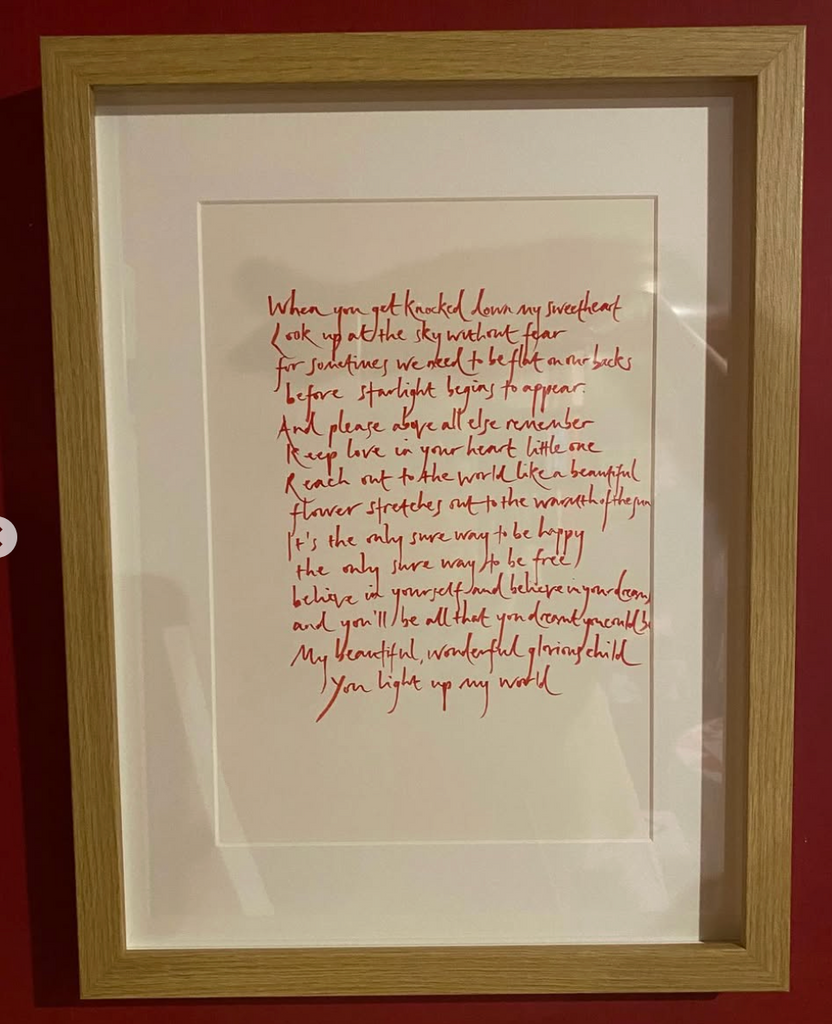 When you get knocked down my sweetheart
Look up at the sky without fear
for sometimes we need to be flat on our backs
before starlight begins to appear.
And please above all else remember
Keep love in your heart little one
Reach out to the world like a beautiful
flower stretches out to the warmth of the sun
It's the only sure way to be happy
the only sure way to be free
believe in yourself and believe in your dreams
and you'll be all that you dreamt you could be
My beautiful, wonderful glorious child
You light up my world